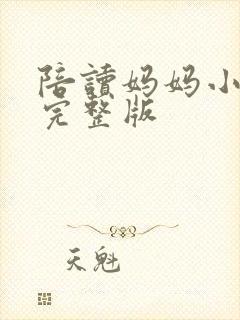 陪讀妈妈小
完整版
天魁